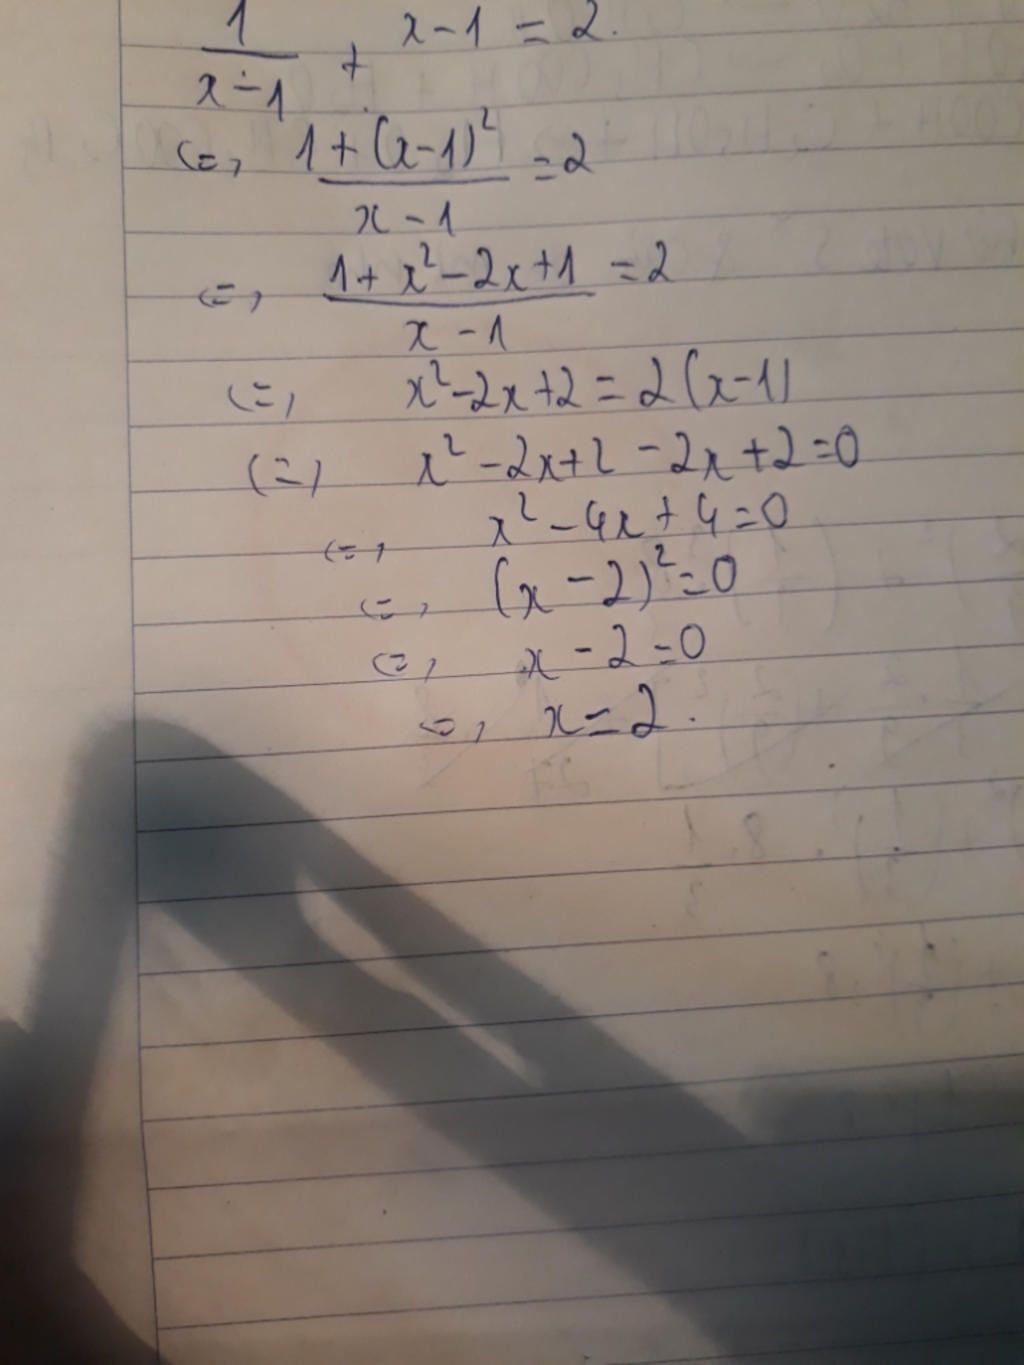 1/(x-1) + x-1 = 2.
<=> (1+(x-1)²)/(x-1) = 2
<=> (1+x²-2x+1)/(x-1) = 2
<=> x²-2x+2 = 2(x-1)
<=> x²-2x+2-2x+2=0
<=> x²-4x+4=0
<=> (x-2)²=0
<=> x-2=0
<=> x=2.